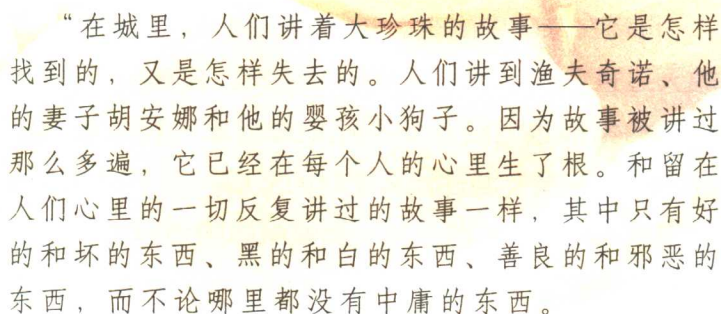 “在城里，人们讲着大珍珠的故事——它是怎样
找到的，又是怎样失去的。人们讲到渔夫奇诺、他
的妻子胡安娜和他的婴孩小狗子。因为故事被讲过
那么多遍，它已经在每个人的心里生了根。和留在
人们心里的一切反复讲过的故事一样，其中只有好
的和坏的东西、黑的和白的东西、善良的和邪恶的
东西，而不论哪里都没有中庸的东西。